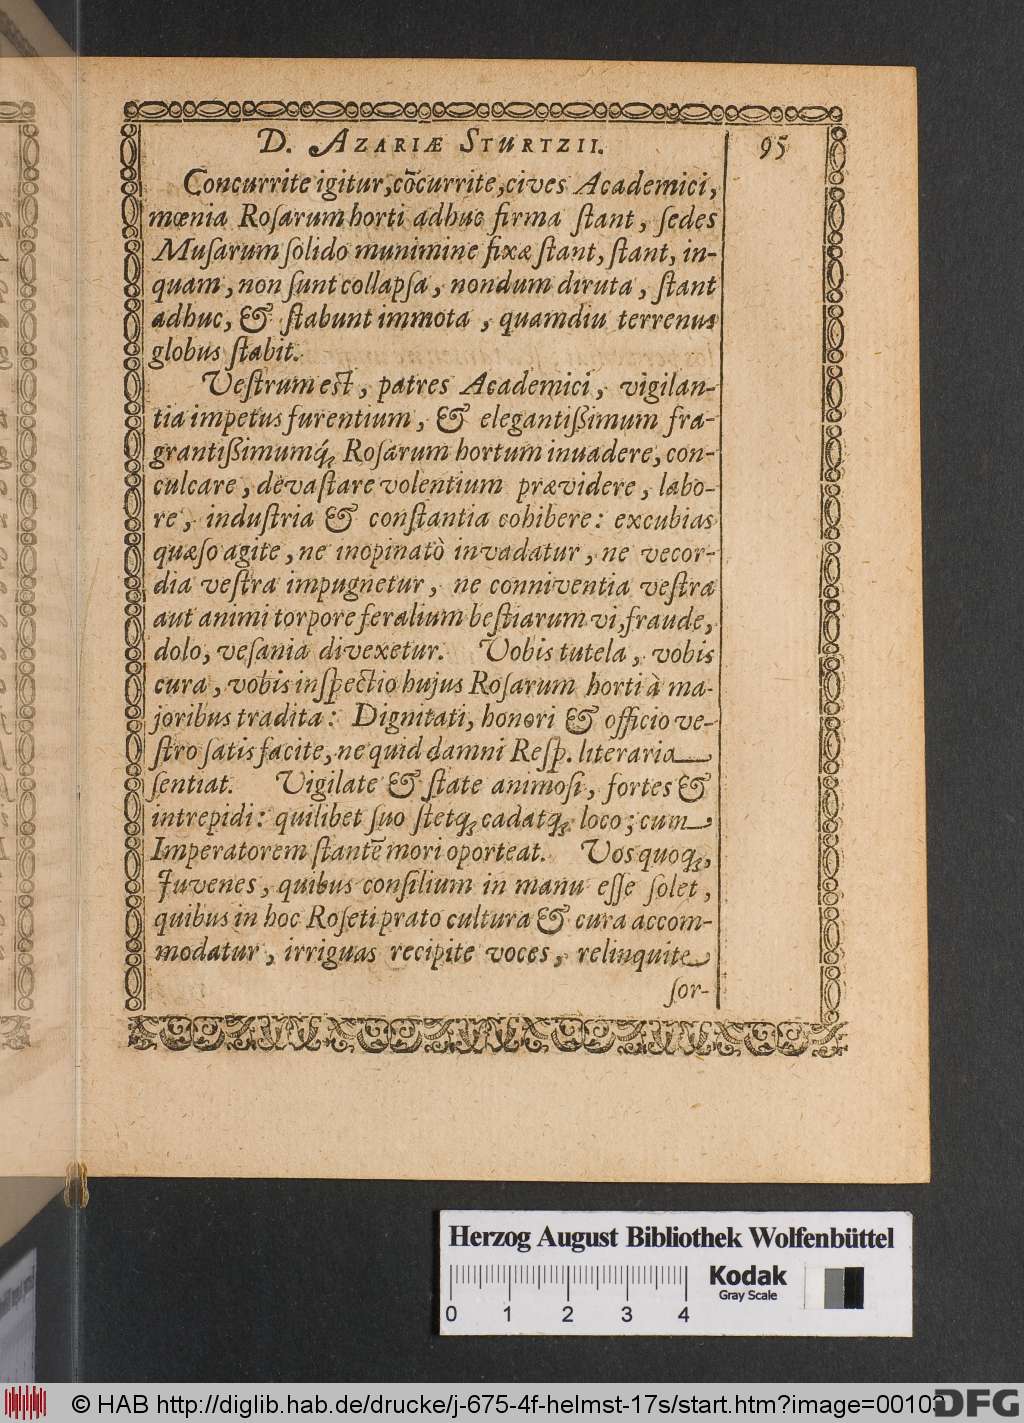 D. AZARIÆ STURTZII. 95
Concurrite igitur, cõcurrite, cives Academici,
mœnia Roſarum horti adhuc firma ſtant, ſedes
Muſarum ſolido munimine fixæ ſtant, ſtant, in-
quam, non ſunt collapſa, nondum diruta, ſtant
adhuc, & ſtabunt immota, quamdiu terrenus
globus ſtabit.
Veſtrum eſt, patres Academici, vigilan-
tia impetus furentium, & elegantißimum fra-
grantißimumq́ꝫ Roſarum hortum inuadere, con-
culcare, devaſtare volentium prævidere, labo-
re, induſtria & conſtantia cohibere: excubias
quæſo agite, ne inopinatò invadatur, ne vecor-
dia veſtra impugnetur, ne conniventia veſtra
aut animi torpore feralium beſtiarum vi, fraude,
dolo, veſania divexetur. Vobis tutela, vobis
cura, vobis inſpectio hujus Roſarum horti à ma-
joribus tradita: Dignitati, honori & officio ve-
ſtro ſatisfacite, ne quid damni Reſp. literaria
ſentiat. Vigilate & ſtate animoſi, fortes &
intrepidi: quilibet ſuo ſtetqꝫ cadatqꝫ loco; cum
Imperatorem ſtantē mori oporteat. Vos quoqꝫ,
Juvenes, quibus conſilium in manu eſſe ſolet,
quibus in hoc Roſeti prato cultura & cura accom-
modatur, irriguas recipite voces, relinquite
ſor-
Herzog August Bibliothek Wolfenbüttel
Kodak
Gray Scale
0 1 2 3 4
© HAB http://diglib.hab.de/drucke/j-675-4f-helmst-17s/start.htm?image=00103
DFG